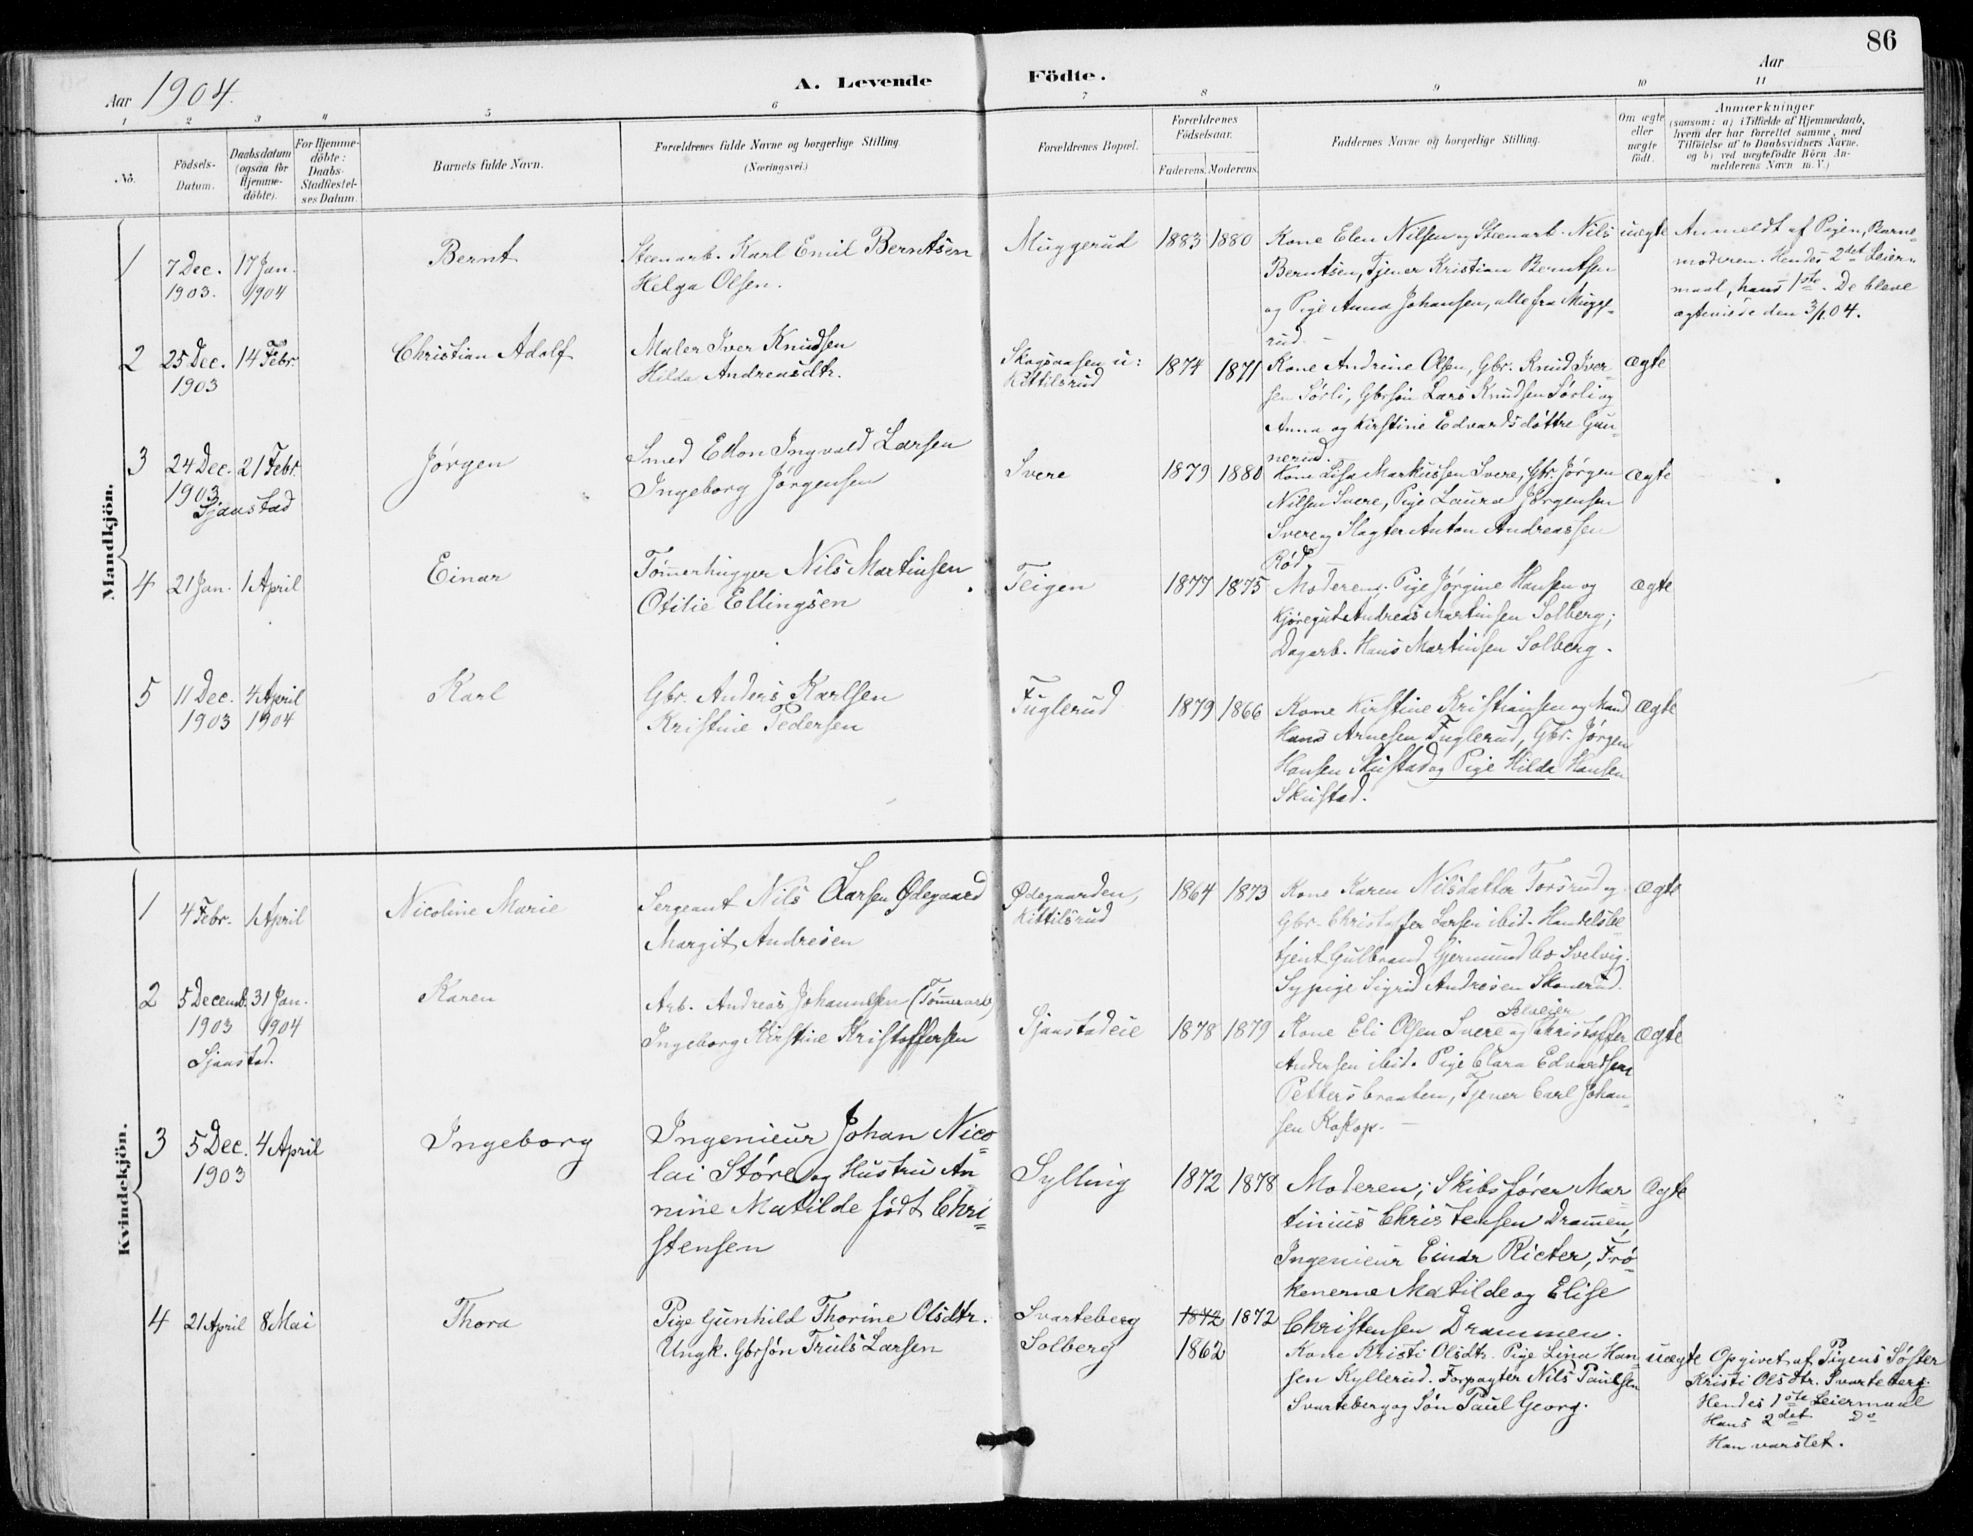 86
Aar 1904.
A. Levende Födte.
Aar
1 2 3 4 5 6 7 8 9 10 11
No.
Födsels-Datum.
Daabsdatum (ogsaa for Hjemme-döbte).
For Hjemme-döbte: Daabs-Stadfæstel-ses Datum.
Barnets fulde Navn.
Forældrenes fulde Navne og borgerlige Stilling
(Næringsvei.)
Forældrenes Bopæl.
Forældrenes Födselsaar.
Faderens. Moderens.
Faddernes Navne og borgerlige Stilling.
Om ægte eller uægte født.
Anmærkninger
(saasom: a) i Tilfælde af Hjemmedaab,
hvem der har forrettet samme, med
Tilföielse af to Daabsvidners Navne,
og b) ved uægtefödte Börn An-
melderens Navn m. V.)
Mandkjön.
1 7 Dec. 1903. 17 Jan. 1904 Bernt
Stenarb. Karl Emil Berntsen
Helga Olsen.
Muggerud 1883 1880
Kone Elen Nilsen og Stenarb. Nils
Berntsen, Tjener Kristian Berntsen
og Pige Anna Johansen, alle fra Mugge-
rud.
uægte
Anmeldt af Pigen, Barne-
moderen. Hendes 2det Leier-
maal, hans 1ste. De bleve
ægteviede den 3/1 04.
2 25 Dec. 1903 14 Febr. Christian Adolf
Maler Iver Knudsen
Hilda Andreasdtr.
Skogsaasen u:
Kittilsrud
1874 1871
Kone Andrine Olsen, Gbr. Knud Iver-
sen Sørli, Gbrsøn Lars Knudsen Sørli og
Anna og Kirstine Edvardsdøttre Gun-
nerud.
ægte
3 24 Dec. 1903 21 Febr. Jørgen
Sjaastad
Smed Edon Ingvald Larsen
Ingeborg Jørgensen
Svere 1879 1880
Kone Lisa Markussen Svere, Gbr. Jørgen
Nilsen Svere, Pige Laura Jørgensen
Svere og Slagter Anton Andreassen
Rød.
ægte
4 21 Jan. 1 April Einar
Tømerhugger Nils Martinsen
Otilie Ellingsen
Teigen 1877 1875
Moderen; Pige Jørgine Hansen og
Kjøregut Andreas Martinsen Solberg;
Dagarb. Hans Martinsen Solberg.
ægte
5 11 Dec. 1903 4 April 1904 Karl
Gbr. Anders Karlsen
Kristine Pedersen
Fuglerud 1879 1866
Kone Kirstine Kristiansen og Mand
Hans Arnesen Fuglerud, Gbr. Jørgen
Hansen Skustad og Pige Hilda Hansen
Skustad.
ægte
Kvindekjön.
1 4 Febr. 1 April Nicoline Marie
Sergeant Nils Larsen Ødegaard
Margit Andresen
Ødegaarden,
Kittilsrud
1864 1873
Kone Karen Nilsdatter Torsrud og
Gbr. Christoffer Larsen ibid. Handelsbe-
tjent Gulbrand Gjermundbo Svelvig.
Sypige Sigrid Andresen Skonerud.
ægte
2 5 Decemb. 1903 31 Jan. 1904 Karen
Sjaastad.
Arb. Andreas Johannesen (Tømerarb)
Ingeborg Kirstine Kristoffersen
Sjaastadeie 1878 1879
Kone Eli Olsen Svere og Christoffer
Andersen ibid. Pige Clara Edvardsen
Pettersbraaten, Tjener Carl Johan-
sen
ægte
3 5 Dec. 1903 4 April Ingeborg
Ingenieur Johan Nico-
lai Støre og Hustru An-
nine Matilde født Chri-
stensen
Sylling 1872 1878
Moderen; Skibsfører Mar-
tinius Christensen Dramen,
Ingenieur Einar Rieter, Frø-
kenerne Matilde og Elise
Christensen Drammen.
ægte
4 21 April 8 Mai Thora
Pige Gunhild Thorine Olsdtr.
Ungk. Gbrsøn Truls Larsen
Svarteberg
Solberg
1872 1872
1862
Kone Kristi Olsdtr. Pige Lina Han-
sen Kyllerud. Forpagter Nils Paulsen
Svarteberg og Søn Paul Georg.
uægte
Opgivet af Pigens Søster
Kristi Olsdtr. Svarteberg.
Hendes 1ste Leiermaal
Hans 2det Do
Han varslet.